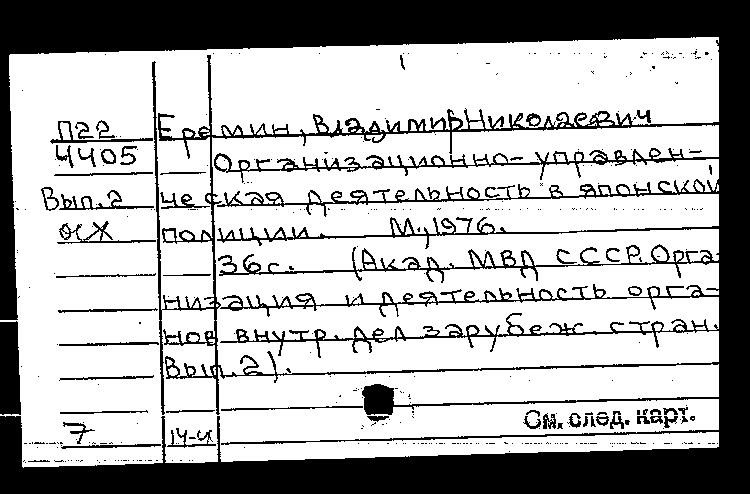 П22 Еремин, Владимир Николаевич
4405 Организационно-управлен-
Вып.2 ческая деятельность в японской
ОСХ полиции. М., 1976.
36с. (Акад. МВД СССР. Орга-
низация и деятельность орга-
нов внутр. дел зарубеж. стран.
Вып.2).
См. след. карт.
7 14-4